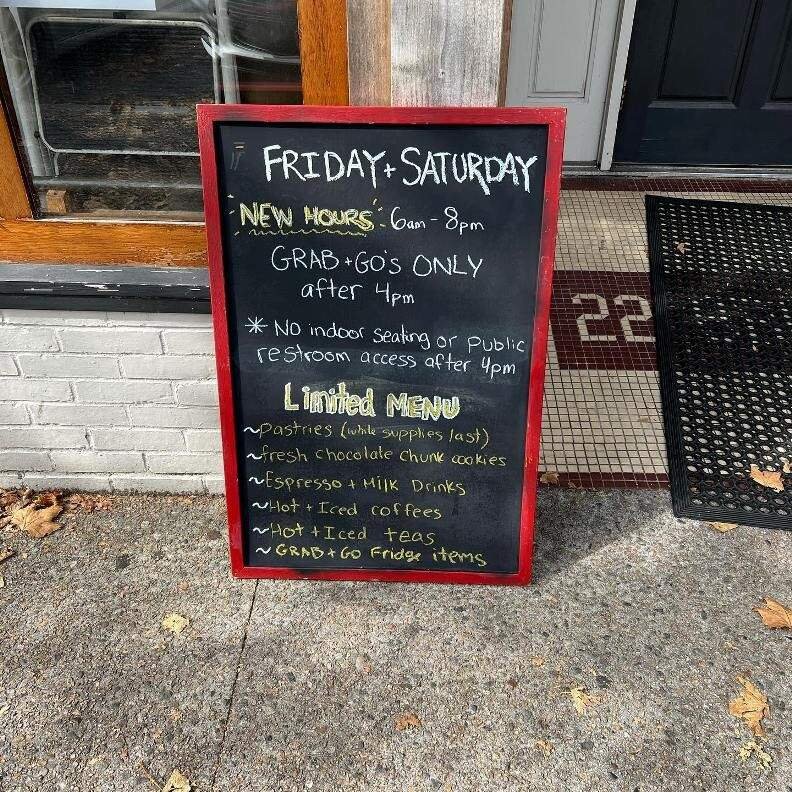 FRIDAY + SATURDAY
NEW HOURS: 6am - 8pm
GRAB + GO'S ONLY
after 4pm
* No indoor seating or public
restroom access after 4pm
Limited MENU
~pastries (while supplies last)
~fresh chocolate chunk cookies
~Espresso + Milk Drinks
~Hot + Iced coffees
~Hot + Iced teas
~ GRAB + GO Fridge items
22